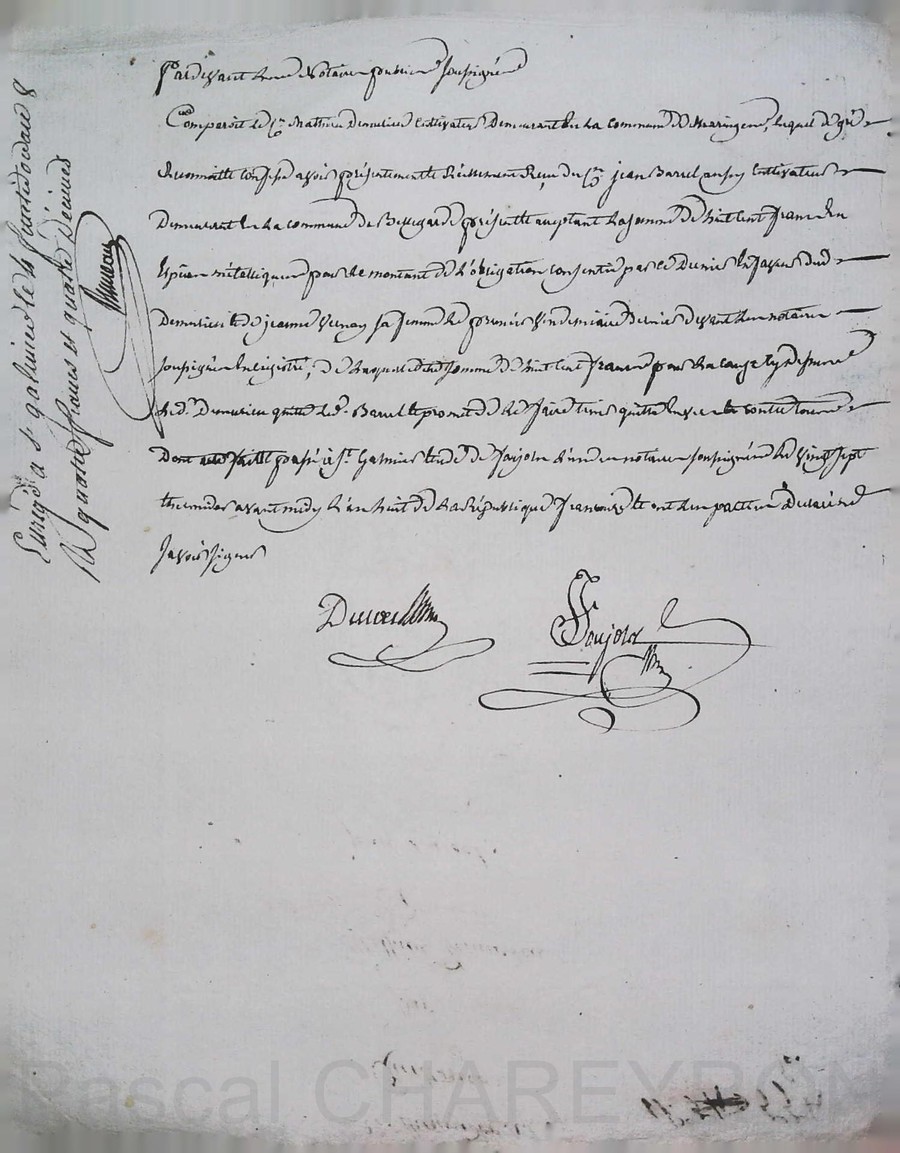 Pardevant Le Notaire public soussigné
Comparoit le Cn. Mathieu Demulieu Cultivateur Demeurant En La Commune De Maringes, lequel de gré
Reconnoitte Confesse avoir présentement Et Réellement Reçu du Cn. jean Barrel ancien Cultivateur
Demeurant En La Commune de Bellegarde présent Et acceptant La somme De huit Cent francs En
Espèces métalliques pour Le montant De L'obligation Consentie par Ce Dernier En faveur Dud.
Demulieu Et de jeanne Vernay sa femme Le premier Vendemiaire Dernier Devant Le notaire
soussigné Enregistré, De Laquelle ditte somme De huit Cent francs pour La Cause Cy Dessus
Led. Demulieu quitte Led. Barrel Et promet De Le faire tenir quitte Envers Et Contre tous
Dont acte fait Et passé à St. Galmier Etude De Faujole L'un Des notaires soussigné Le Vingt sept
thermidor avant midy L'an huit De La République francaise Et ont Les parties Déclaré ne
savoir signer
Faujole
Enrégé à St galmier le 4 fructidor an 8
Ru quatre francs et quatre Décimes
Pascal CHAREYRON